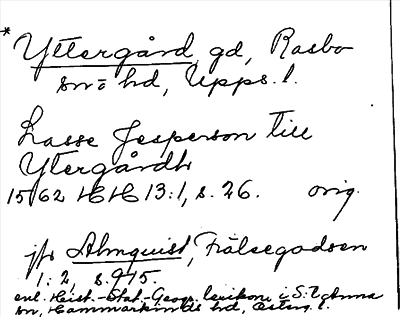 * Yttergård, gd, Rasbo
sn o hd, Upps. l.
Lasse Jesperson till
Ytergårdh
1562 HH 13:1, s. 26. orig.
jfr Almquist, Frälsegodsen
1:2, s. 915.
enl. Hist.-Stat.-Geogr. lexikon i S:t Anna
sn, Hammarkinds hd, Österg. l.